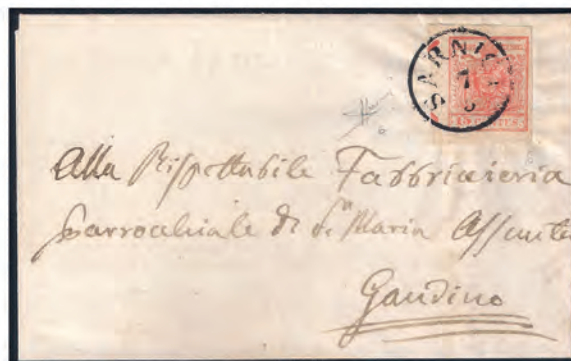 SARNICO
7
15 CENTES
Alla Rispettabile Fabbricieria
Parrochiale di S.ta Maria Assunta
Gandino